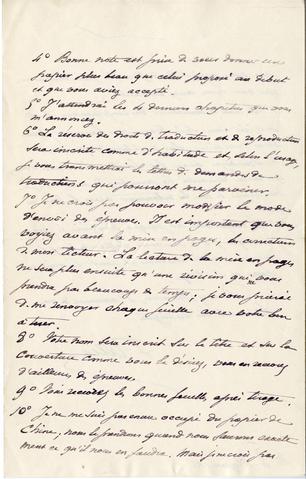 4° Bonne note est prise de vous donner un
papier plus beau que celui proposé au début
et que vous aviez accepté.
5° J'attendrai les 4 derniers chapitres que vous
m'annoncez.
6° La réserve des droits de traduction et de reproduction
sera inscrite comme d'habitude et, selon l'usage,
je vous transmettrai les lettres de demandes de
traductions qui pourront me parvenir.
7° Je ne crois pas pouvoir modifier le mode
d'envoi des épreuves. Il est important que vous
voyiez avant la mise en pages, les corrections
de mon lecteur. La lecture de la mise en pages
ne sera plus ensuite qu'une révision qui ne vous
prendra pas beaucoup de temps; je vous prierai
de me renvoyer chaque feuille avec votre bon
à tirer.
8° Votre nom sera inscrit sur le titre et sur la
couverture comme vous le désirez, vous en recevrez
d'ailleurs des épreuves.
9° Vous recevrez les bonnes feuilles, après tirage.
10° Je ne me suis pas encore occupé du papier de
Chine, nous le prendrons quand nous saurons exacte
ment ce qu'il nous en faudra. Mais je ne crois pas